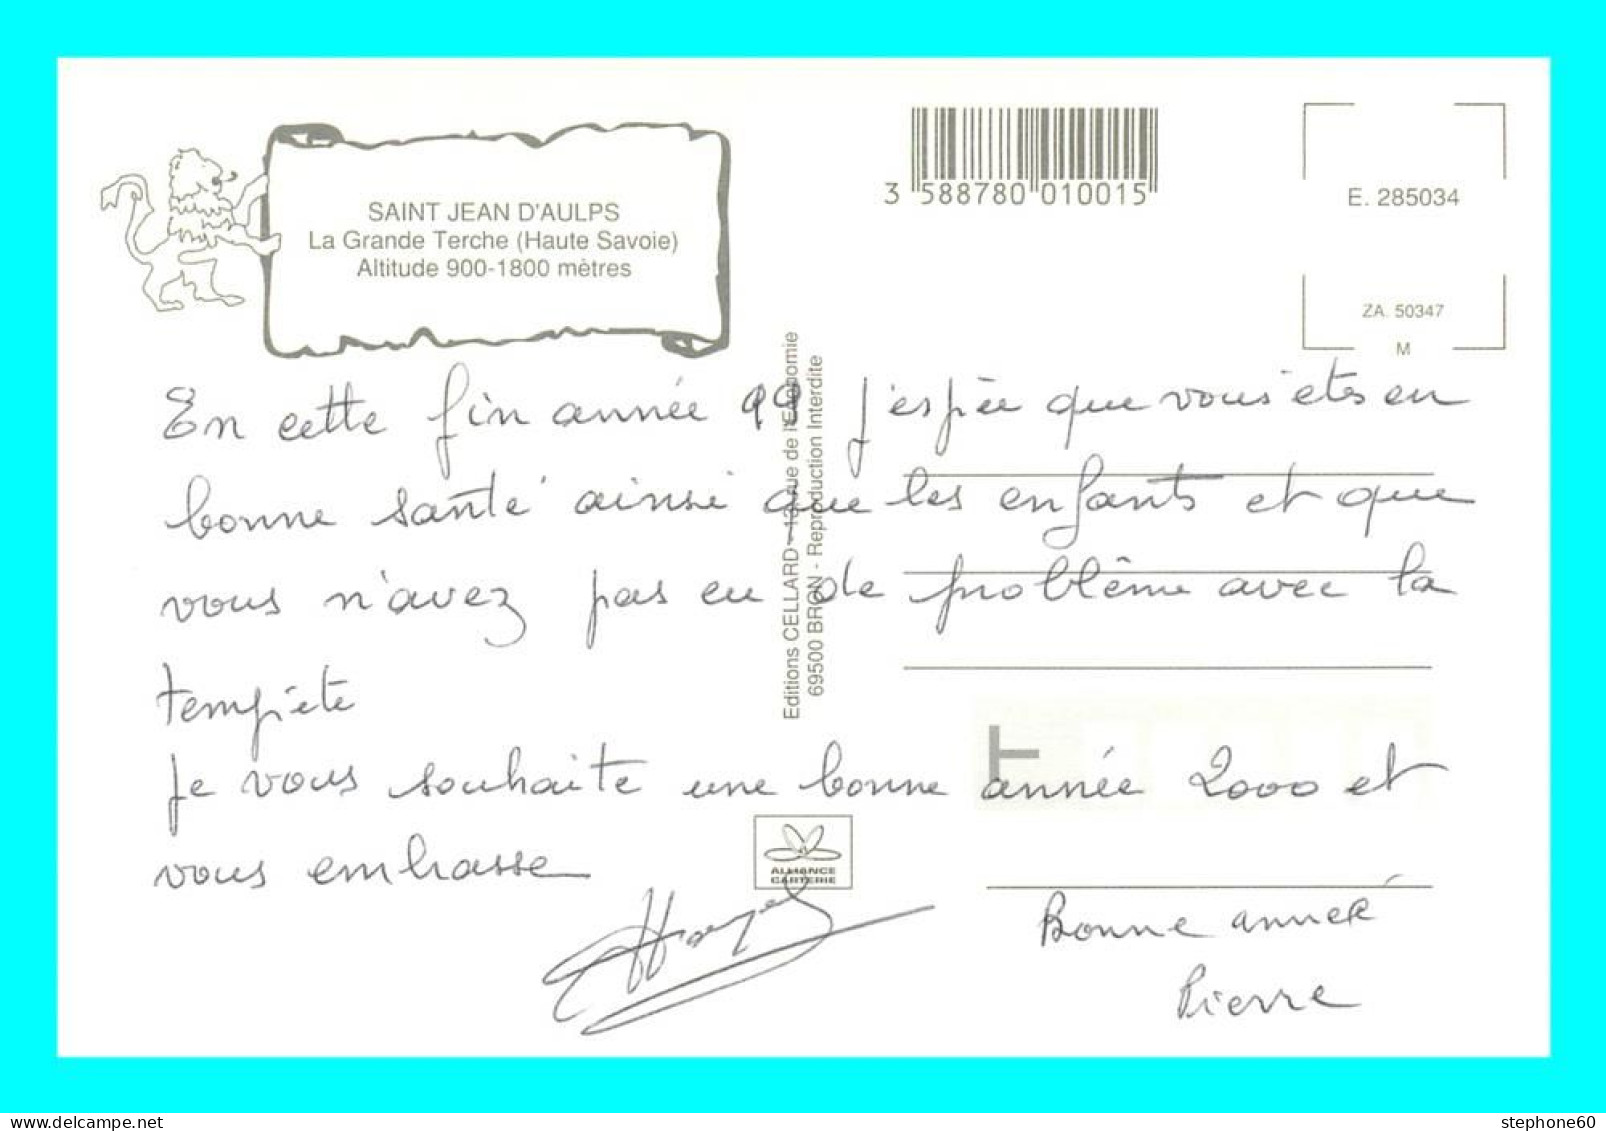 SAINT JEAN D'AULPS
La Grande Terche (Haute Savoie)
Altitude 900-1800 mètres
3 588780 010015
E. 285034
ZA. 50347
M
Editions CELLARD - rue de l'Economie
69500 BRON - Reproduction Interdite
En cette fin année 99 j'espère que vous êtes en
bonne santé ainsi que les enfants et que
vous n'avez pas eu de problême avec la
tempête
Je vous souhaite une bonne année 2000 et
vous embrasse
ALLIANCE
CARTERIE
Bonne année
Pierre
stephone60